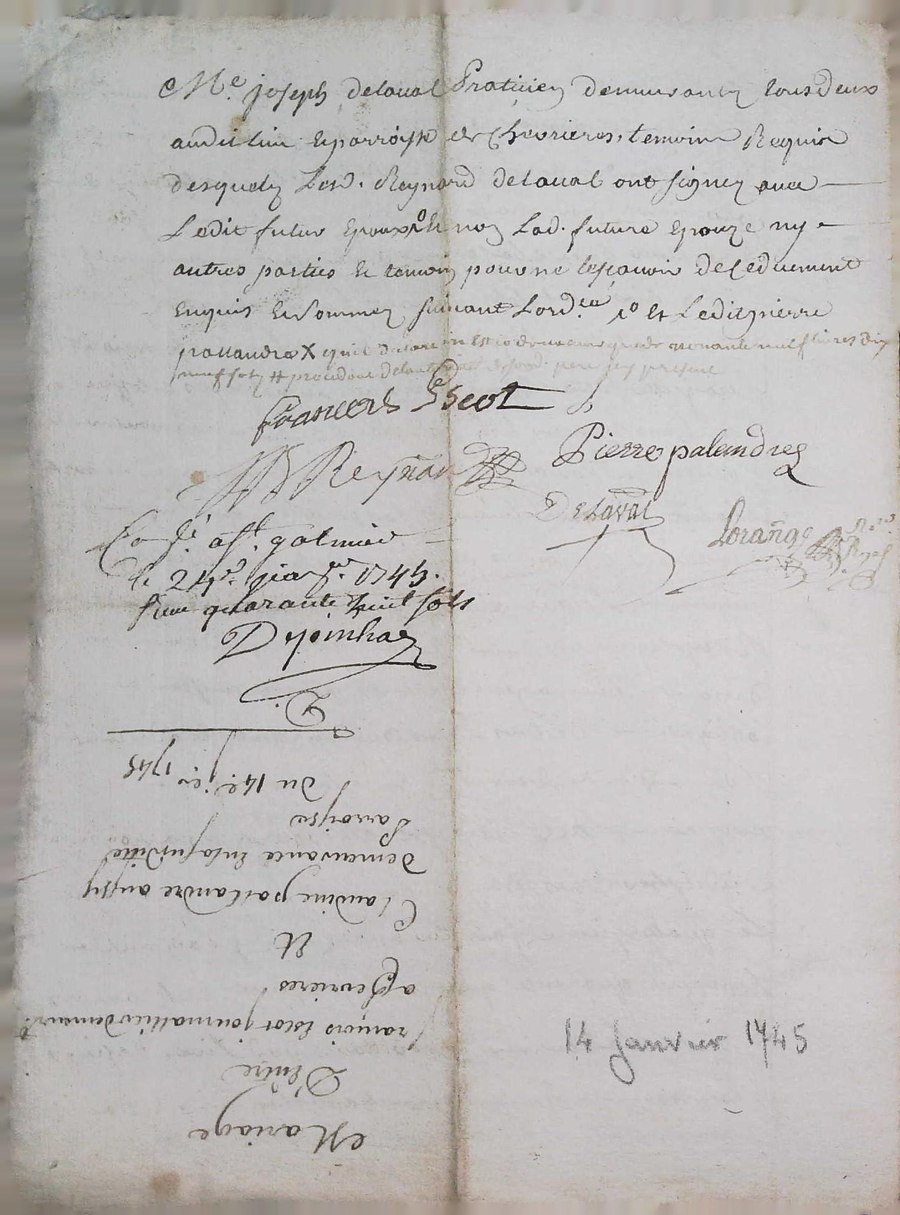 Me. joseph delaval Praticien demeurants tous deux
audit lieu & parroisse de Chevrieres, temoins Requis
desquels Lesd. Reynard delaval ont signez avec
Ledit futur Epoux & non Lad. future Epouze ny
autres parties & temoin pour ne scavoir de ce duement
enquis & sommez suivant Lord.ce et Ledit pierre
pallandre X
francois Escot
Pierre palandre
Reynard
Delaval
Lorange
Con.lé a st. galmier
le 24e. janv.er 1745.
Reçu quarante huit sols
Despinhac
Mariage
D'Entre
françois Escot journallier demeurt
a Chevrieres
Et
Claudine pallandre aussy
demeurance En la susditte
Parroisse
Du 14e. j.er 1745
14 Janvier 1745